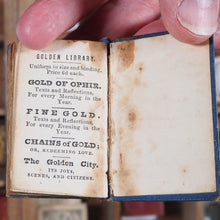 GOLDEN LIBRARY.
Uniform in size and binding,
Price 6d each.
GOLD OF OPHIR.
Texts and Reflections,
For every Morning in the
Year.
FINE GOLD.
Texts and Reflections,
For every Evening in the
Year.
CHAINS of GOLD;
OR, REDEEMING LOVE.
The Golden City.
ITS JOYS,
SCENES, AND CITIZENS.